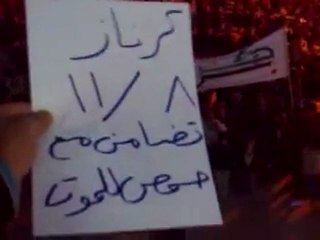 كرناز
١١/٨
تضامن مع
حمص للموت